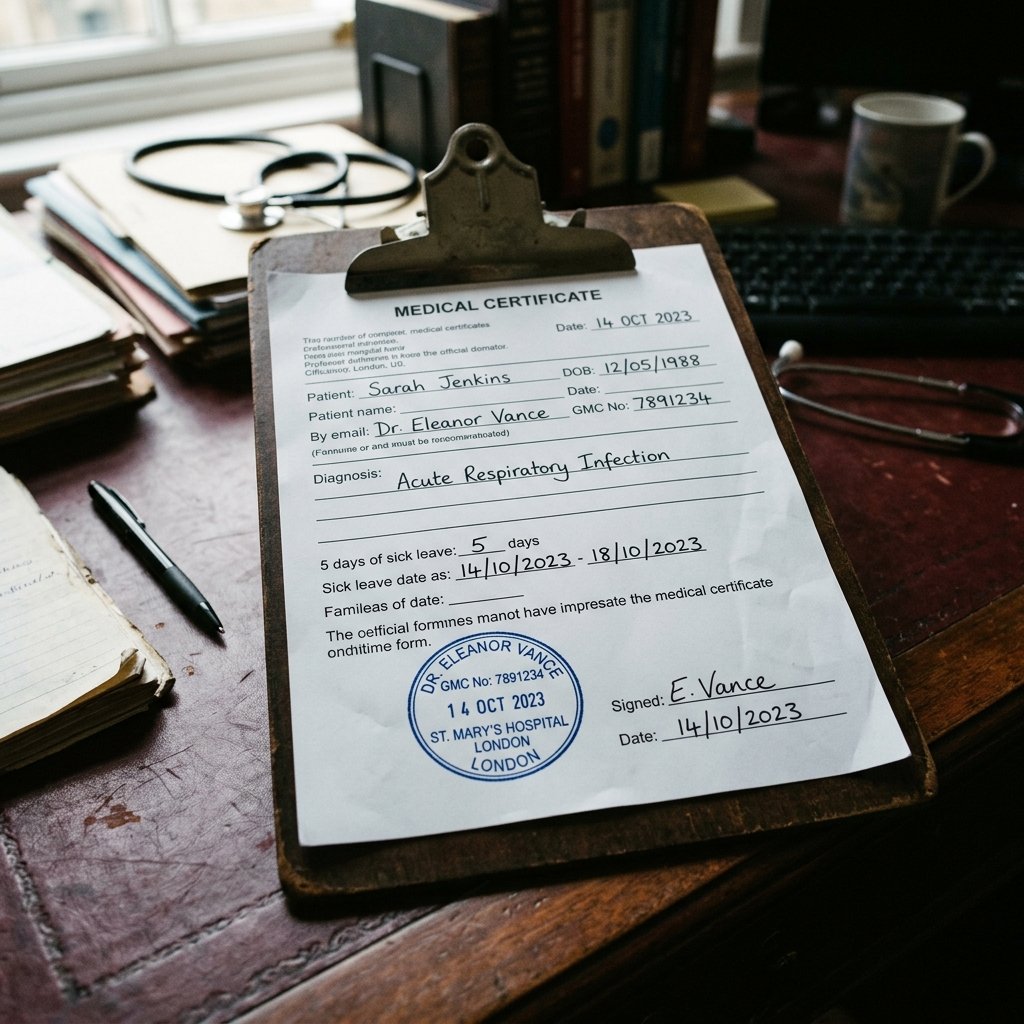 MEDICAL CERTIFICATE
Date: 14 OCT 2023
medical certificates
the official domator.
London, UO.
Patient: Sarah Jenkins DOB: 12/05/1988
Patient name: Date:
By email: Dr. Eleanor Vance GMC No: 7891234
or and must be
Diagnosis: Acute Respiratory Infection
5 days of sick leave: 5 days
Sick leave date as: 14/10/2023 - 18/10/2023
Famileas of date:
The oetficial formines manot have impresate the medical certificate
ondhitime form.
DR. ELEANOR VANCE
GMC No: 7891234
14 OCT 2023
ST. MARY'S HOSPITAL
LONDON
LONDON
Signed: E. Vance
Date: 14/10/2023